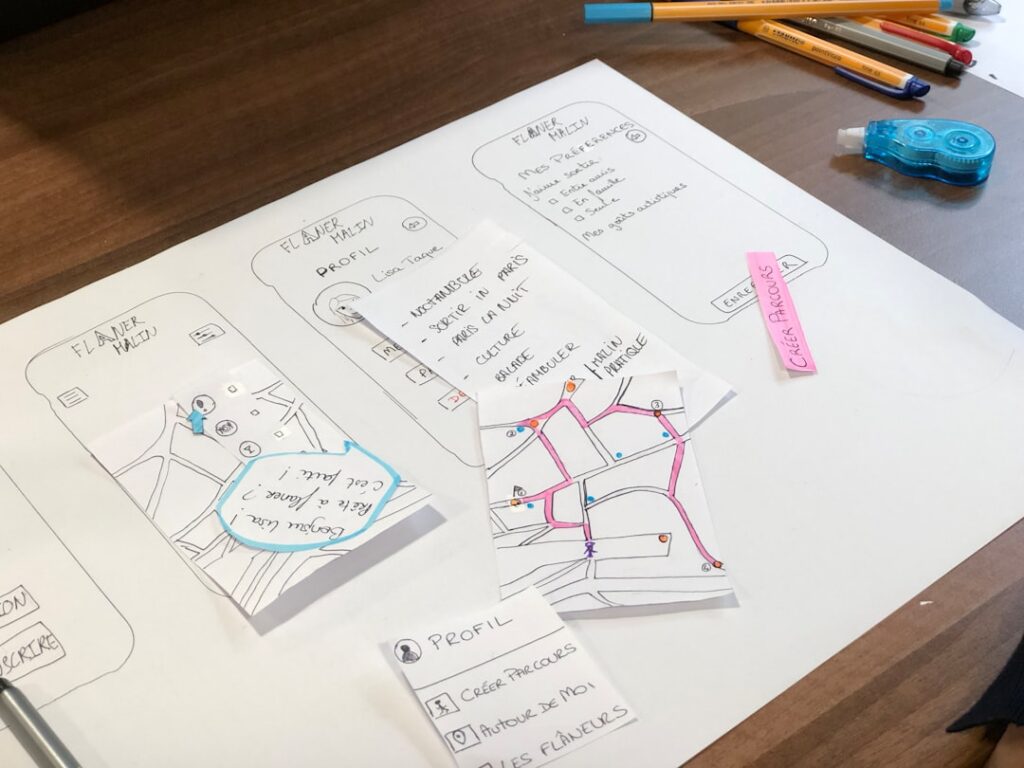 FLANER
MALIN
MES PRÉFÉRENCES
J'aime sortir
Entre amis
En famille
Seule
Mes goûts artistiques
FLANER
MALIN
PROFIL
Lisa Taque
- NOCTAMBULE
- SORTIR IN PARIS
- PARIS LA NUIT
- CULTURE
BALADE
MALIN
PRATIQUE
CRÉER PARCOURS
FLANER
MALIN
Bonjour Lisa!
Prête à flaner?
C'est parti!
PROFIL
CRÉER PARCOURS
AUTOUR DE MOI
LES FLÂNEURS